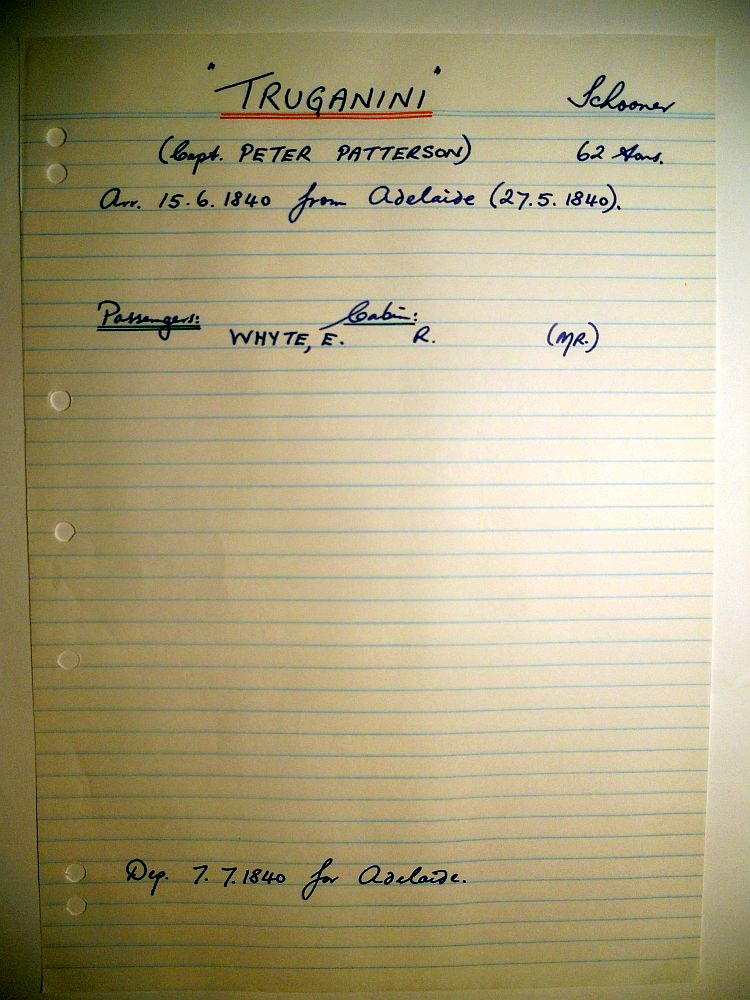 "TRUGANINI" Schooner
(Capt. PETER PATTERSON) 62 tons.
Arr. 15.6.1840 from Adelaide (27.5.1840).
Passengers: Cabin:
WHYTE, E. R. (MR.)
Dep. 7.7.1840 for Adelaide.